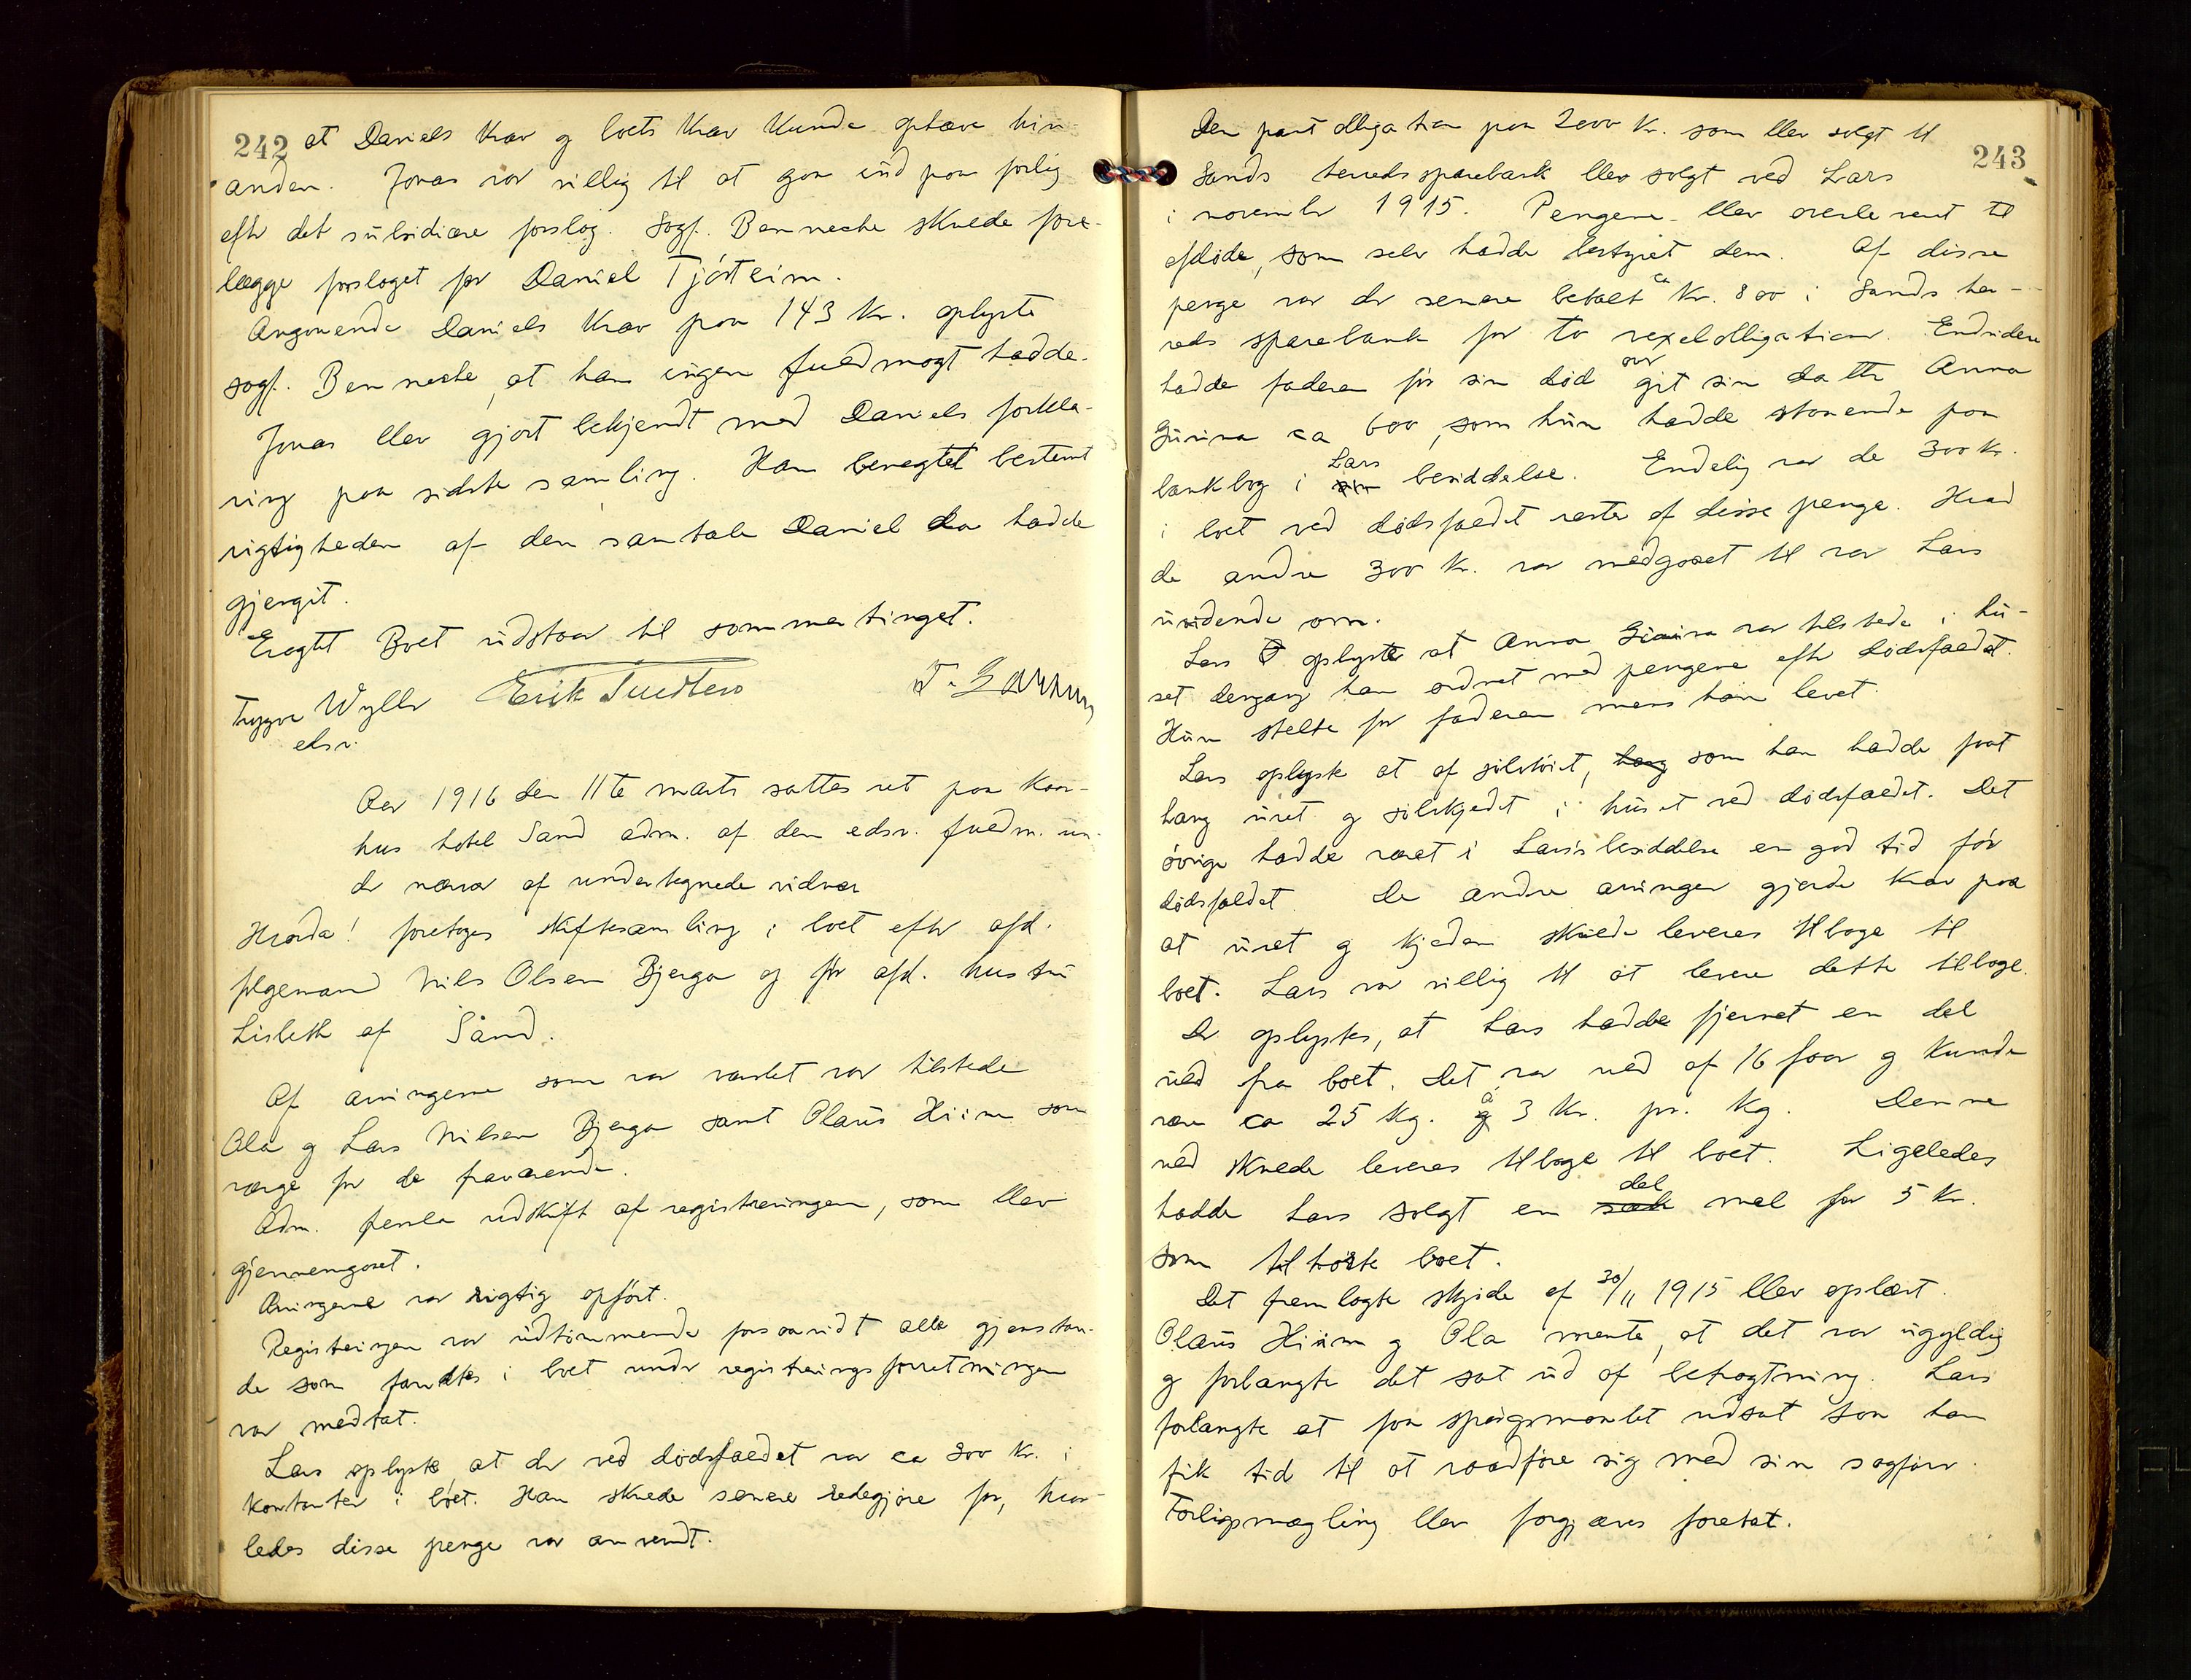 242 at Daniels krav og boets krav kunde ophæve hin-
anden. Jonas var villig til at gaa ind paa forlig
efter det subsidiære forslag. Sagf. Benneche skulde fore-
lægge forslaget for Daniel Tjøsteim.
Angaaende Daniels krav paa 143 kr. oplyste
sagf. Benneche, at han ingen fuldmagt hadde.
Jonas blev gjort bekjendt med Daniels forkla-
ring paa sidste samling. Han benegtet bestemt
rigtigheden af den samtale Daniel da hadde
gjengit.
Eragtet Boet udstaar til sommertinget.
Trygve Wyller Erik
edsv.
Aar 1916 den 11te marts sattes ret paa Kaar-
hus hotel Sand adm. af den edsv. fuldm. un-
der nærvær af undertegnede vidner
Hvorda! foretoges skiftesamling i boet efter afd.
folgemand Nils Olsen Bjerga og før afd. hustru
Lisbeth af Sand.
Af arvingerne som var varslet var tilstede
Ola og Lars Nilsen Bjerga samt Olaus Hiim som
værge for de fraværende.
Adm. fremla udskrift af registreringen, som blev
gjennemgaaet.
Arvingerne var rigtig opført.
Registreringen var udtømmende forsaavidt alle gjenstan-
de som fandtes i boet under registreringsforretningen
var medtat.
Lars oplyste, at der ved dødsfaldet var ca 300 kr. i
kontanter i boet. Han skulde senere redegjøre for, hvor-
ledes disse penge var anvendt.
243
Den pantobligation paa 2000 kr. som blev solgt til
Sands herreds sparebank blev solgt ved Lars
i november 1915. Pengene blev overleveret til
afdøde, som selv hadde bestyret dem. Af disse
penge var der senere betalt ca kr. 800 i Sands her-
reds sparebank for to vexelobligationer. Endvidere
hadde faderen før sin død over git sin datter Anna
Gurina ca 600, som hun hadde staaende paa
bankbog i sin Lars besiddelse. Endelig var de 300 kr.
i boet ved dødsfaldet rester af disse penge. Hvad
de andre 300 kr. var medgaaet til var Lars
uvidende om.
Lars oplyste at Anna Gurina var tilstede i hu-
set dengang han ordnet med pengene efter dødsfaldet.
Hun stelte for faderen mens han levet.
Lars oplyste at af sølvtøiet, hang som han hadde faat
hang uret og sølvkjedet i huset ved dødsfaldet. Det
øvrige hadde været i Lars's besiddelse en god tid før
dødsfaldet. De andre arvinger gjorde krav paa
at uret og kjeden skulde leveres tilbage til
boet. Lars var villig til at levere dette tilbage.
Der oplystes, at Lars hadde fjernet en del
uld fra boet. Det var uld af 16 faar og kunde
være ca 25 kg. à 3 kr. pr. kg. Denne
uld skulde leveres tilbage til boet. Ligeledes
hadde Lars solgt en sæk del mel for 5 kr.
som tilhørte boet.
Det fremlagte skjøde af 30/11 1915 blev oplæst.
Olaus Hiim og Ola mente, at det var ugyldig
og forlangte det sat ud af betragtning. Lars
forlangte at faa spørgsmaalet udsat saa han
fik tid til at raadføre sig med sin sagfører.
Forligsmægling blev forgjæves foretat.